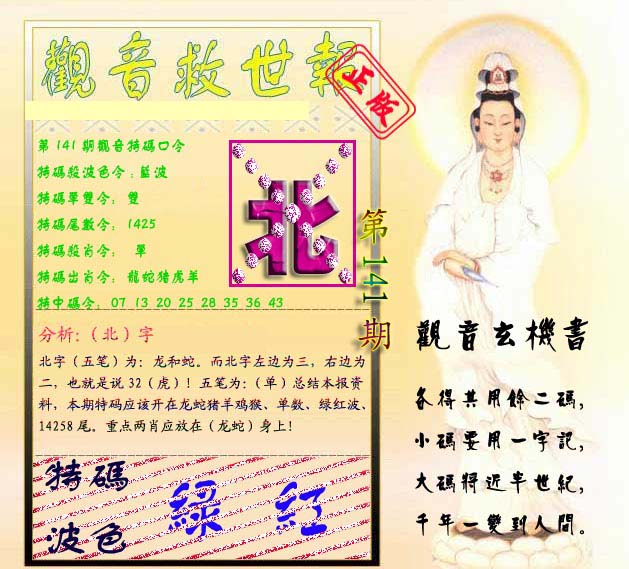 觀音救世報
正版
第141期觀音特碼口令
特碼殺波色令:藍波
特碼單雙令: 雙
特碼尾數令: 1425
特碼殺肖令: 單
特碼出肖令: 龍蛇猪虎羊
特中碼令: 07 13 20 25 28 35 36 43
北
第141期
分析:(北)字
北字(五笔)为:龙和蛇。而北字左边为三,右边为
二,也就是说32(虎)!五笔为:(单)总结本报资
料,本期特码应该开在龙蛇猪羊鸡猴、单数、绿红波、
14258尾。重点两肖应放在(龙蛇)身上!
特碼
波色
綠 红
觀音玄機書
各得其用餘二碼,
小碼要用一字記,
大碼將近半世紀,
千年一變到人間。